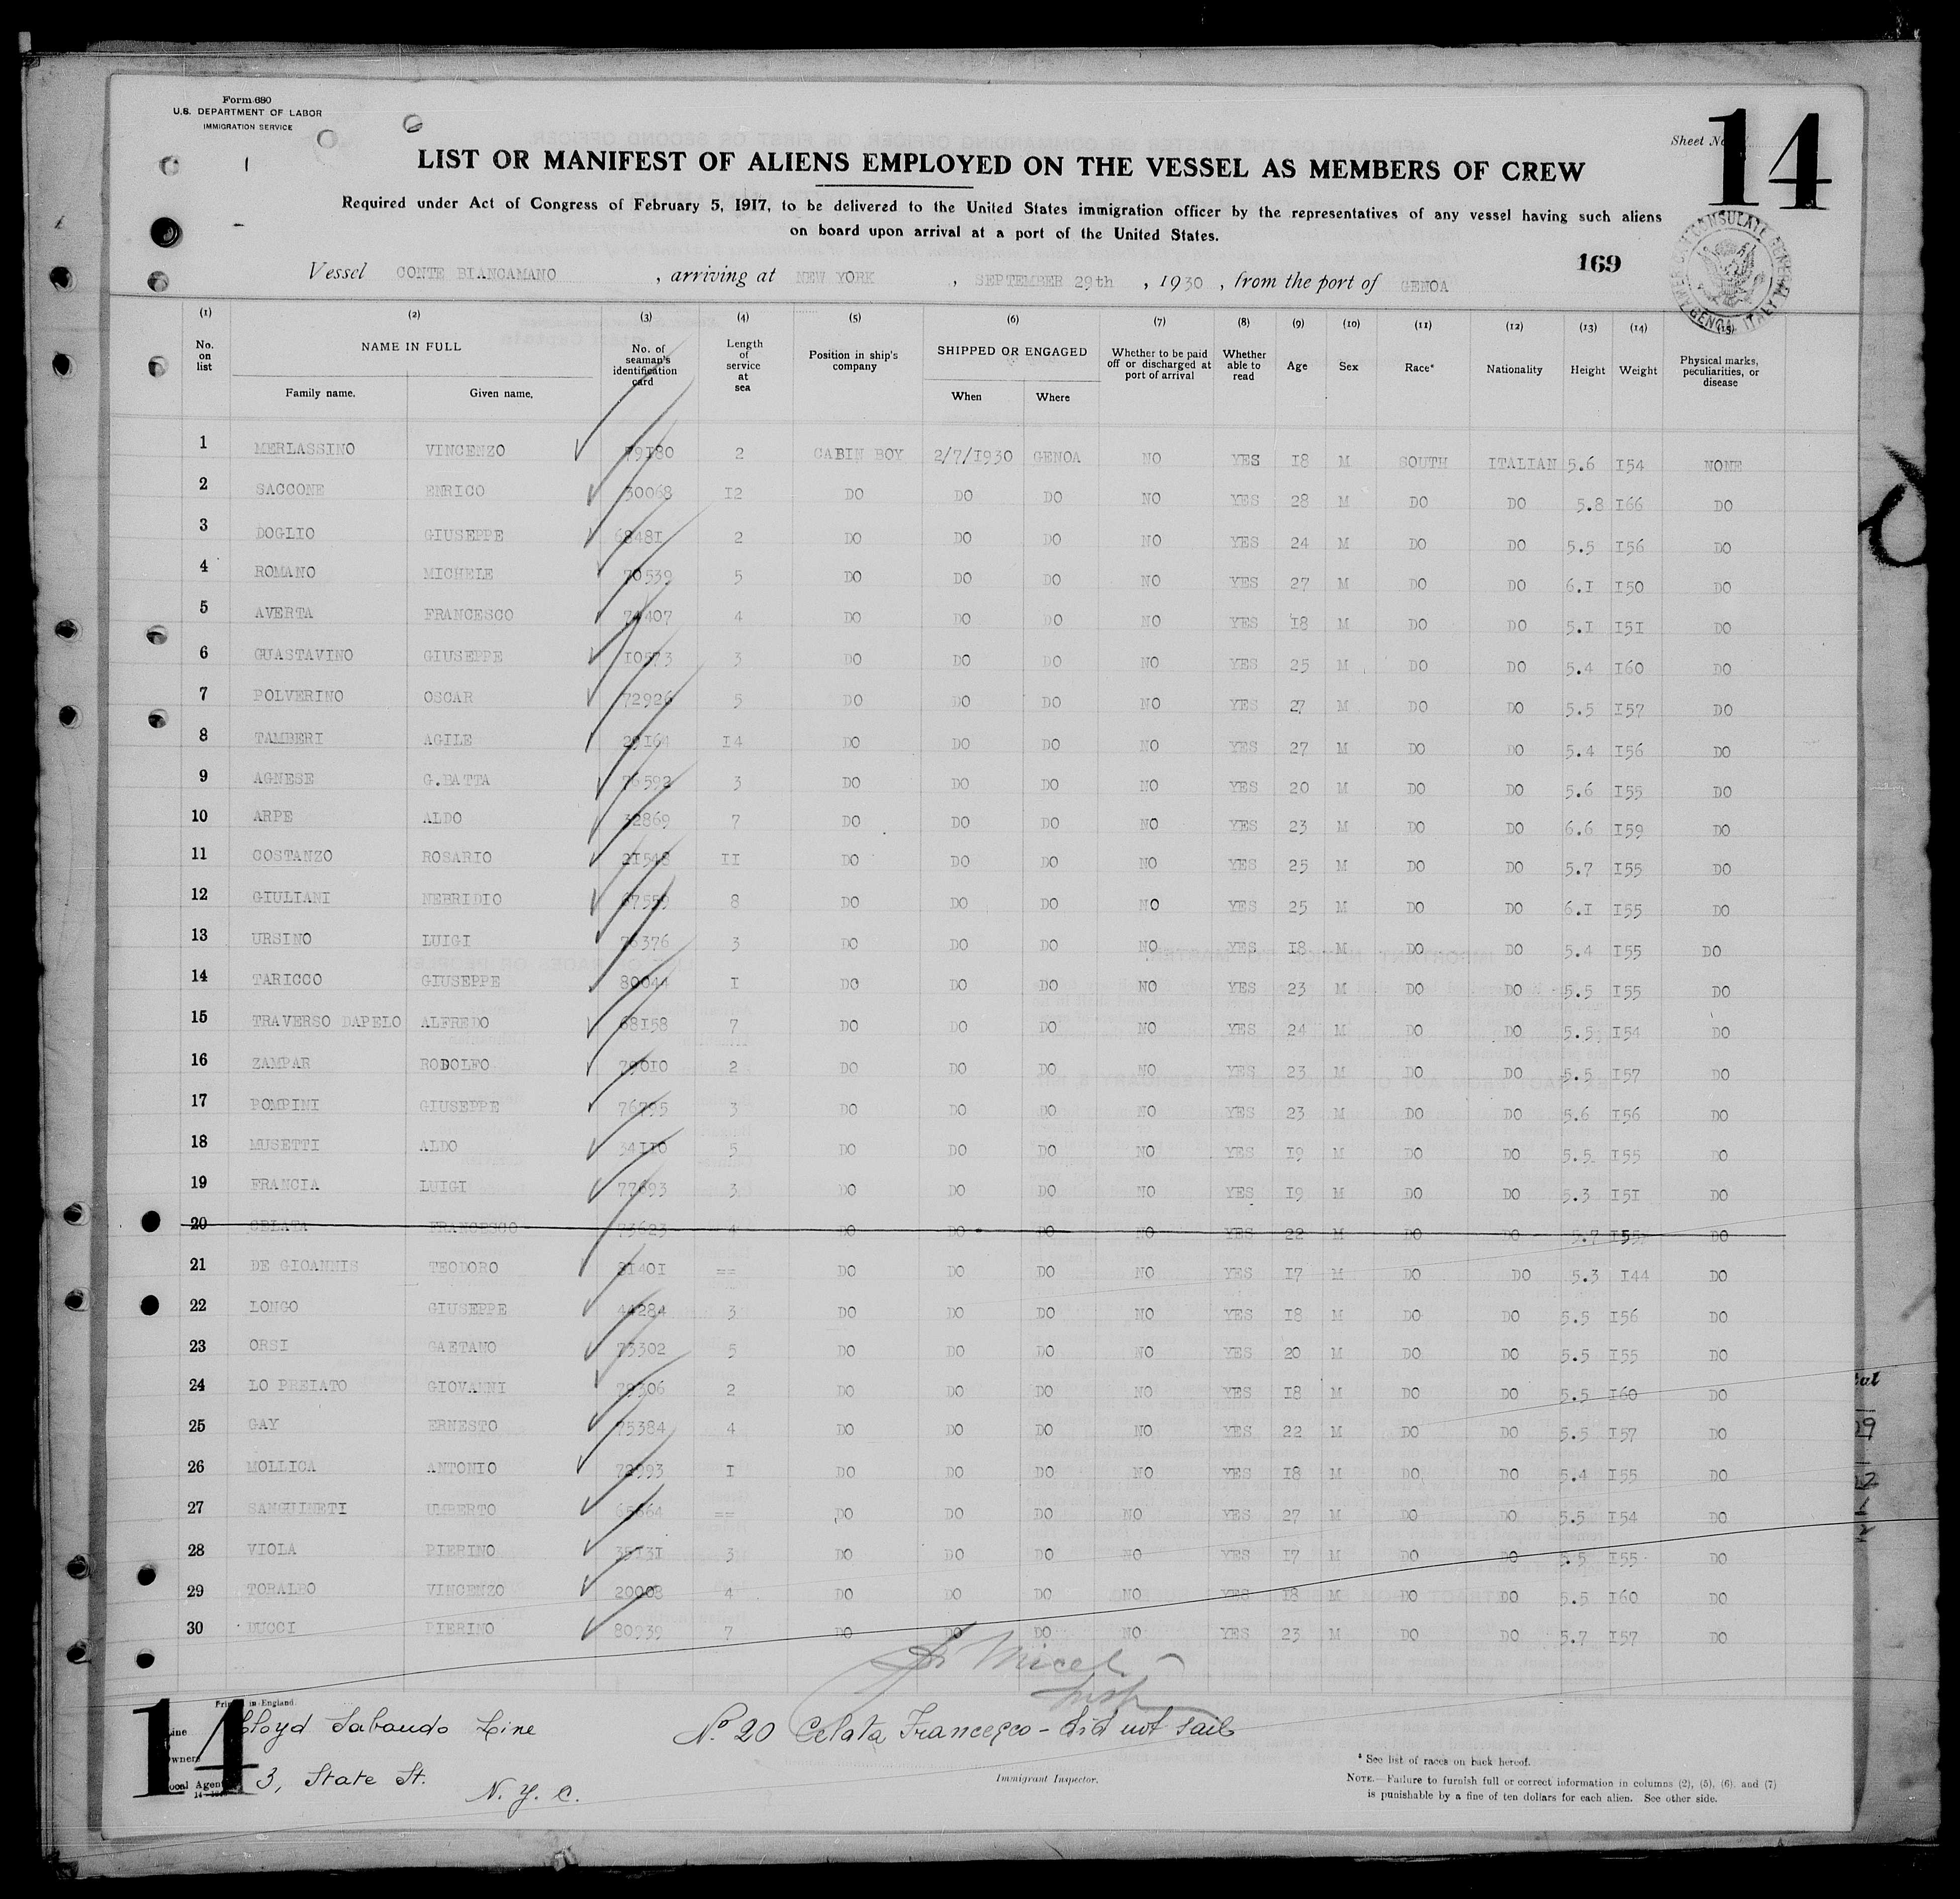 Form 680
U.S. DEPARTMENT OF LABOR
IMMIGRATION SERVICE
Sheet No. 14
LIST OR MANIFEST OF ALIENS EMPLOYED ON THE VESSEL AS MEMBERS OF CREW
Required under Act of Congress of February 5, 1917, to be delivered to the United States immigration officer by the representatives of any vessel having such aliens
on board upon arrival at a port of the United States.
169
AMERICAN CONSULATE GENERAL GENOA ITALY
Vessel CONTE BIANCAMANO , arriving at NEW YORK , SEPTEMBER 29th , 1930 , from the port of GENOA
(1) (2) (3) (4) (5) (6) (7) (8) (9) (10) (11) (12) (13) (14) (15)
No. on list NAME IN FULL Family name. Given name. No. of seaman's identification card Length of service at sea Position in ship's company SHIPPED OR ENGAGED When Where Whether to be paid off or discharged at port of arrival Whether able to read Age Sex Race* Nationality Height Weight Physical marks, peculiarities, or disease
1 MERLASSINO VINCENZO 79180 2 CABIN BOY 2/7/1930 GENOA NO YES 18 M SOUTH ITALIAN 5.6 154 NONE
2 SACCONE ENRICO 30068 12 DO DO DO NO YES 28 M DO DO 5.8 166 DO
3 DOGLIO GIUSEPPE 68481 2 DO DO DO NO YES 24 M DO DO 5.5 156 DO
4 ROMANO MICHELE 70539 5 DO DO DO NO YES 27 M DO DO 6.1 150 DO
5 AVERTA FRANCESCO 4 DO DO DO NO YES 18 M DO DO 5.1 151 DO
6 GUASTAVINO GIUSEPPE 10573 3 DO DO DO NO YES 25 M DO DO 5.4 160 DO
7 POLVERINO OSCAR 72926 5 DO DO DO NO YES 27 M DO DO 5.5 157 DO
8 TAMBERI AGILE 29164 14 DO DO DO NO YES 27 M DO DO 5.4 156 DO
9 AGNESE G.BATTA 76592 3 DO DO DO NO YES 20 M DO DO 5.6 155 DO
10 ARPE ALDO 32869 7 DO DO DO NO YES 23 M DO DO 6.6 159 DO
11 COSTANZO ROSARIO 21548 11 DO DO DO NO YES 25 M DO DO 5.7 155 DO
12 GIULIANI NEBRIDIO 67559 8 DO DO DO NO YES 25 M DO DO 6.1 155 DO
13 URSINO LUIGI 3 DO DO DO NO YES 18 M DO DO 5.4 155 DO
14 TARICCO GIUSEPPE 80044 1 DO DO DO NO YES 23 M DO DO 5.5 155 DO
15 TRAVERSO DAPELO ALFREDO 68158 7 DO DO DO NO YES 24 M DO DO 5.5 154 DO
16 ZAMPAR RODOLFO 79010 2 DO DO DO NO YES 23 M DO DO 5.5 157 DO
17 POMPINI GIUSEPPE 76795 3 DO DO DO NO YES 23 M DO DO 5.6 156 DO
18 MUSETTI ALDO 34110 5 DO DO DO NO YES 19 M DO DO 5.5 155 DO
19 FRANCIA LUIGI 77693 3 DO DO DO NO YES 19 M DO DO 5.3 151 DO
20 CELATA FRANCESCO 73623 4 DO DO DO NO YES 22 M DO DO 5.7 155 DO
21 DE GIOANNIS TEODORO 81401 == DO DO DO NO YES 17 M DO DO 5.3 144 DO
22 LONGO GIUSEPPE 44284 3 DO DO DO NO YES 18 M DO DO 5.5 156 DO
23 ORSI GAETANO 73302 5 DO DO DO NO YES 20 M DO DO 5.5 155 DO
24 LO PREIATO GIOVANNI 79306 2 DO DO DO NO YES 18 M DO DO 5.5 160 DO
25 GAY ERNESTO 75384 4 DO DO DO NO YES 22 M DO DO 5.5 157 DO
26 MOLLICA ANTONIO 1 DO DO DO NO YES 18 M DO DO 5.4 155 DO
27 SANGUINETI UMBERTO == DO DO DO NO YES 27 M DO DO 5.5 154 DO
28 VIOLA PIERINO 3 DO DO DO NO YES 17 M DO DO 5.5 155 DO
29 TORALBO VINCENZO 20008 4 DO DO DO NO YES 18 M DO DO 5.5 160 DO
30 DUCCI PIERINO 80939 7 DO DO DO NO YES 23 M DO DO 5.7 157 DO
Insp
Printed in England.
14
Line Lloyd Sabaudo Line
Owners
Local Agent 3, State St.
N. Y. C.
No 20 Celata Francesco - did not sail
Immigrant Inspector.
* See list of races on back hereof.
NOTE.—Failure to furnish full or correct information in columns (2), (5), (6), and (7)
is punishable by a fine of ten dollars for each alien. See other side.